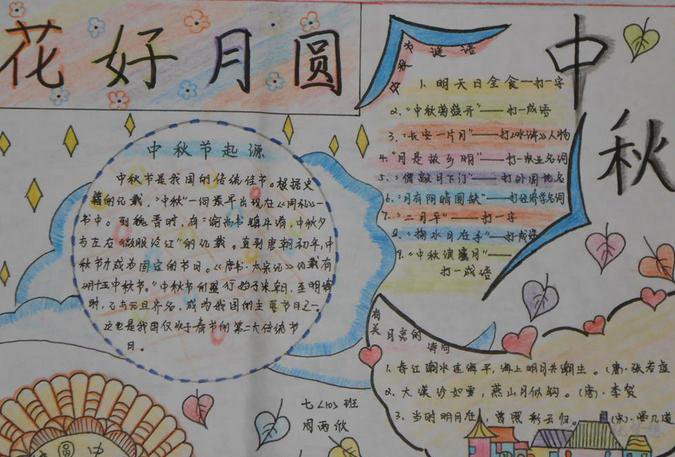 花好月圆
中秋
中秋节谜语
1. 明天日全食—打一字
2. "中秋菊盛开"—打一成语
3. "长安一片月"——打《水浒》人物
4. "月是故乡明"—打一
5. "僧敲月下门"—打外国地名
6. "月有阴晴圆缺"—打经济学名词
7. "二月平"——打一字
8. "掬水月在手"—打成语
9. "中秋
打一成语
中秋节起源
中秋节是我国的传统佳节。根据史
籍的记载,"中秋"一词最早出现在《周礼》一
书中。到魏晋时,有"谕尚书镇牛渚,中秋夕
与左右微服泛江"的记载。直到唐朝初年,中
秋节才成为固定的节日。《唐书·太宗记》记载有
"八月十五中秋节"。中秋节的盛行始于宋朝,至明清
时,已与元旦齐名,成为我国的主要节日之一。
这也是我国仅次于春节的第二大传统节
日。
有关月亮的诗句
1. 春江潮水连海平,海上明月共潮生。(唐·张若虚
2. 大漠沙如雪,燕山月似钩。(唐)·李贺
3. 当时明月在,曾照彩云归。(宋)·晏几道
七〈10〉班
周雨欣
圆 中